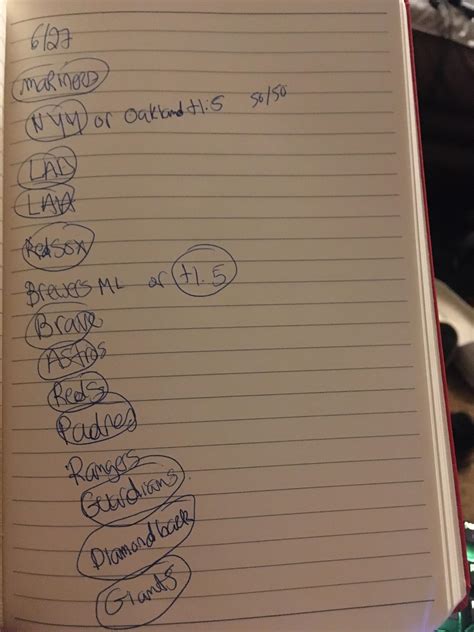 6/27
Mariners
NYY or Oakland +1.5 50/50
LAD
LAA
RedSox
Brewers ML or +1.5
Brave
Astros
Reds
Padres
Rangers
Guardians
Diamondback
Giants